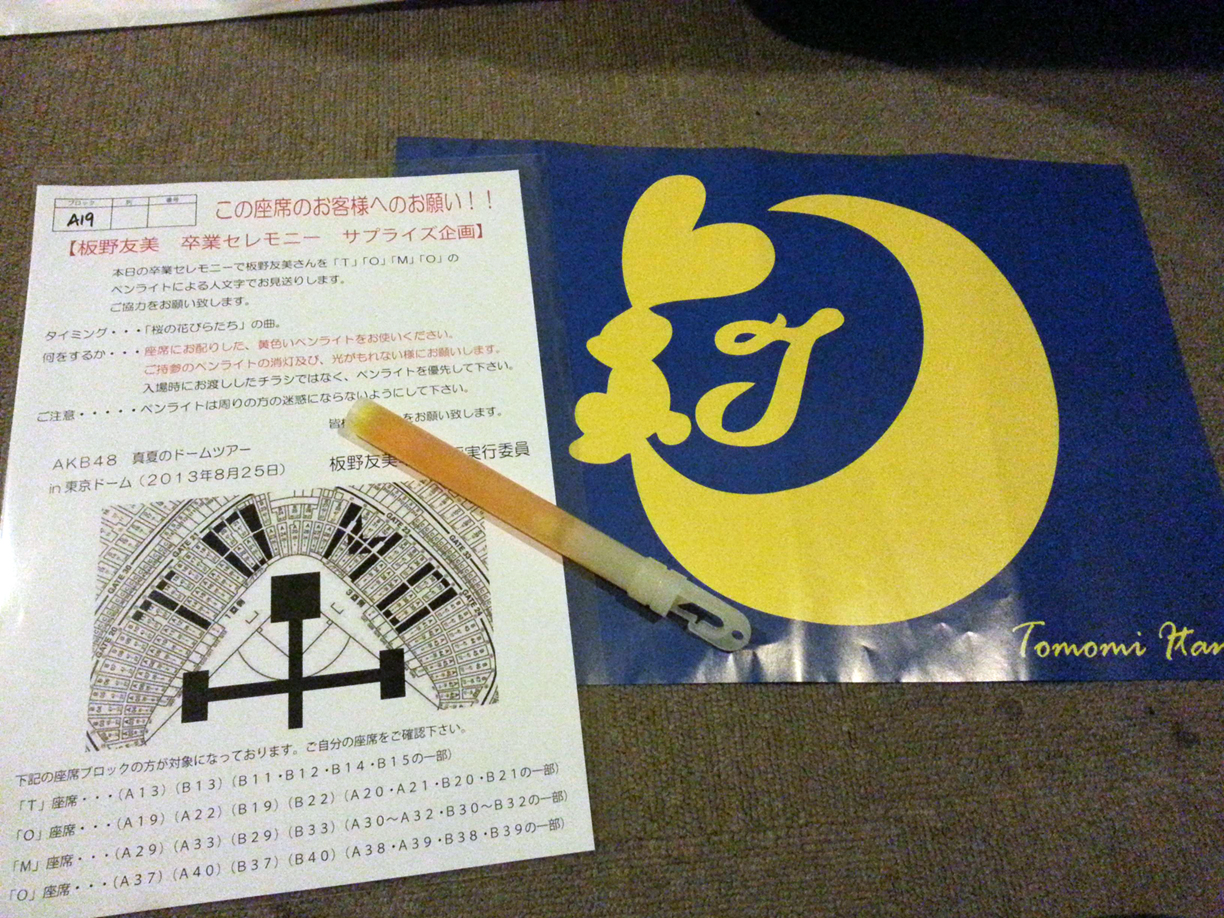 ブロック 列 番号
A19
この座席のお客様へのお願い！！
【板野友美 卒業セレモニー サプライズ企画】
本日の卒業セレモニーで板野友美さんを「T」「O」「M」「O」の
ペンライトによる人文字でお見送りします。
ご協力をお願い致します。
タイミング・・・「桜の花びらたち」の曲。
何をするか・・・座席にお配りした、黄色いペンライトをお使いください。
ご持参のペンライトの消灯及び、光がもれない様にお願いします。
入場時にお渡ししたチラシではなく、ペンライトを優先して下さい。
ご注意・・・・・ペンライトは周りの方の迷惑にならないようにして下さい。
をお願い致します。
AKB48 真夏のドームツアー
in東京ドーム（2013年8月25日）
板野友美 実行委員
下記の座席ブロックの方が対象になっております。ご自分の座席をご確認下さい。
「T」座席・・・（A13）（B13）（B11・B12・B14・B15の一部）
「O」座席・・・（A19）（A22）（B19）（B22）（A20・A21・B20・B21の一部）
「M」座席・・・（A29）（A33）（B29）（B33）（A30～A32・B30～B32の一部）
「O」座席・・・（A37）（A40）（B37）（B40）（A38・A39・B38・B39の一部）
T
Tomomi